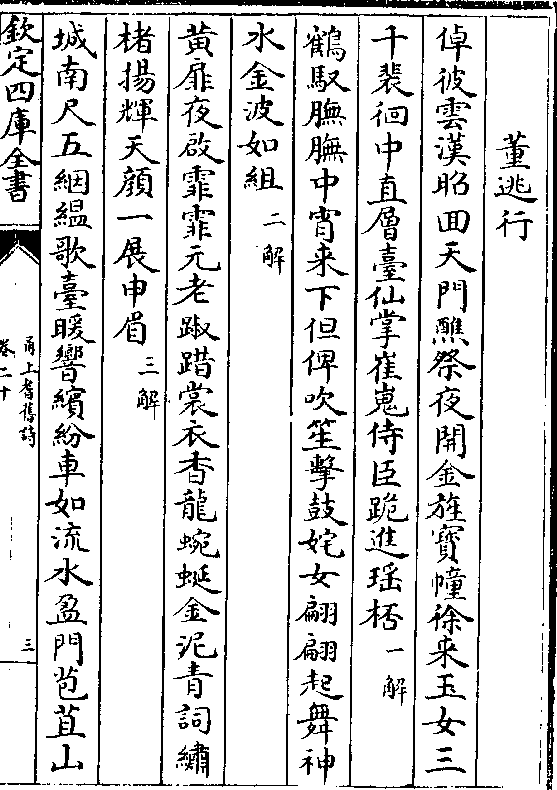 董逃行
倬彼雲漢昭回天門醮祭夜開金旌寳幢徐来玉女三
千裴徊中直層臺仙掌崔嵬侍臣跪進瑶桮一解
鶴馭膴膴中宵来下但俾吹笙擊鼓姹女翩翩起舞神
水金波如組二解
黄扉夜啟霏霏元老踧踖裳衣杳龍蜿蜒金泥青詞繡
楮揚輝天顔一展申眉三解
城南尺五絪緼歌臺暖響繽紛車如流水盈門苞苴山
欽定四庫全書
甬上耆舊詩
卷二十
三